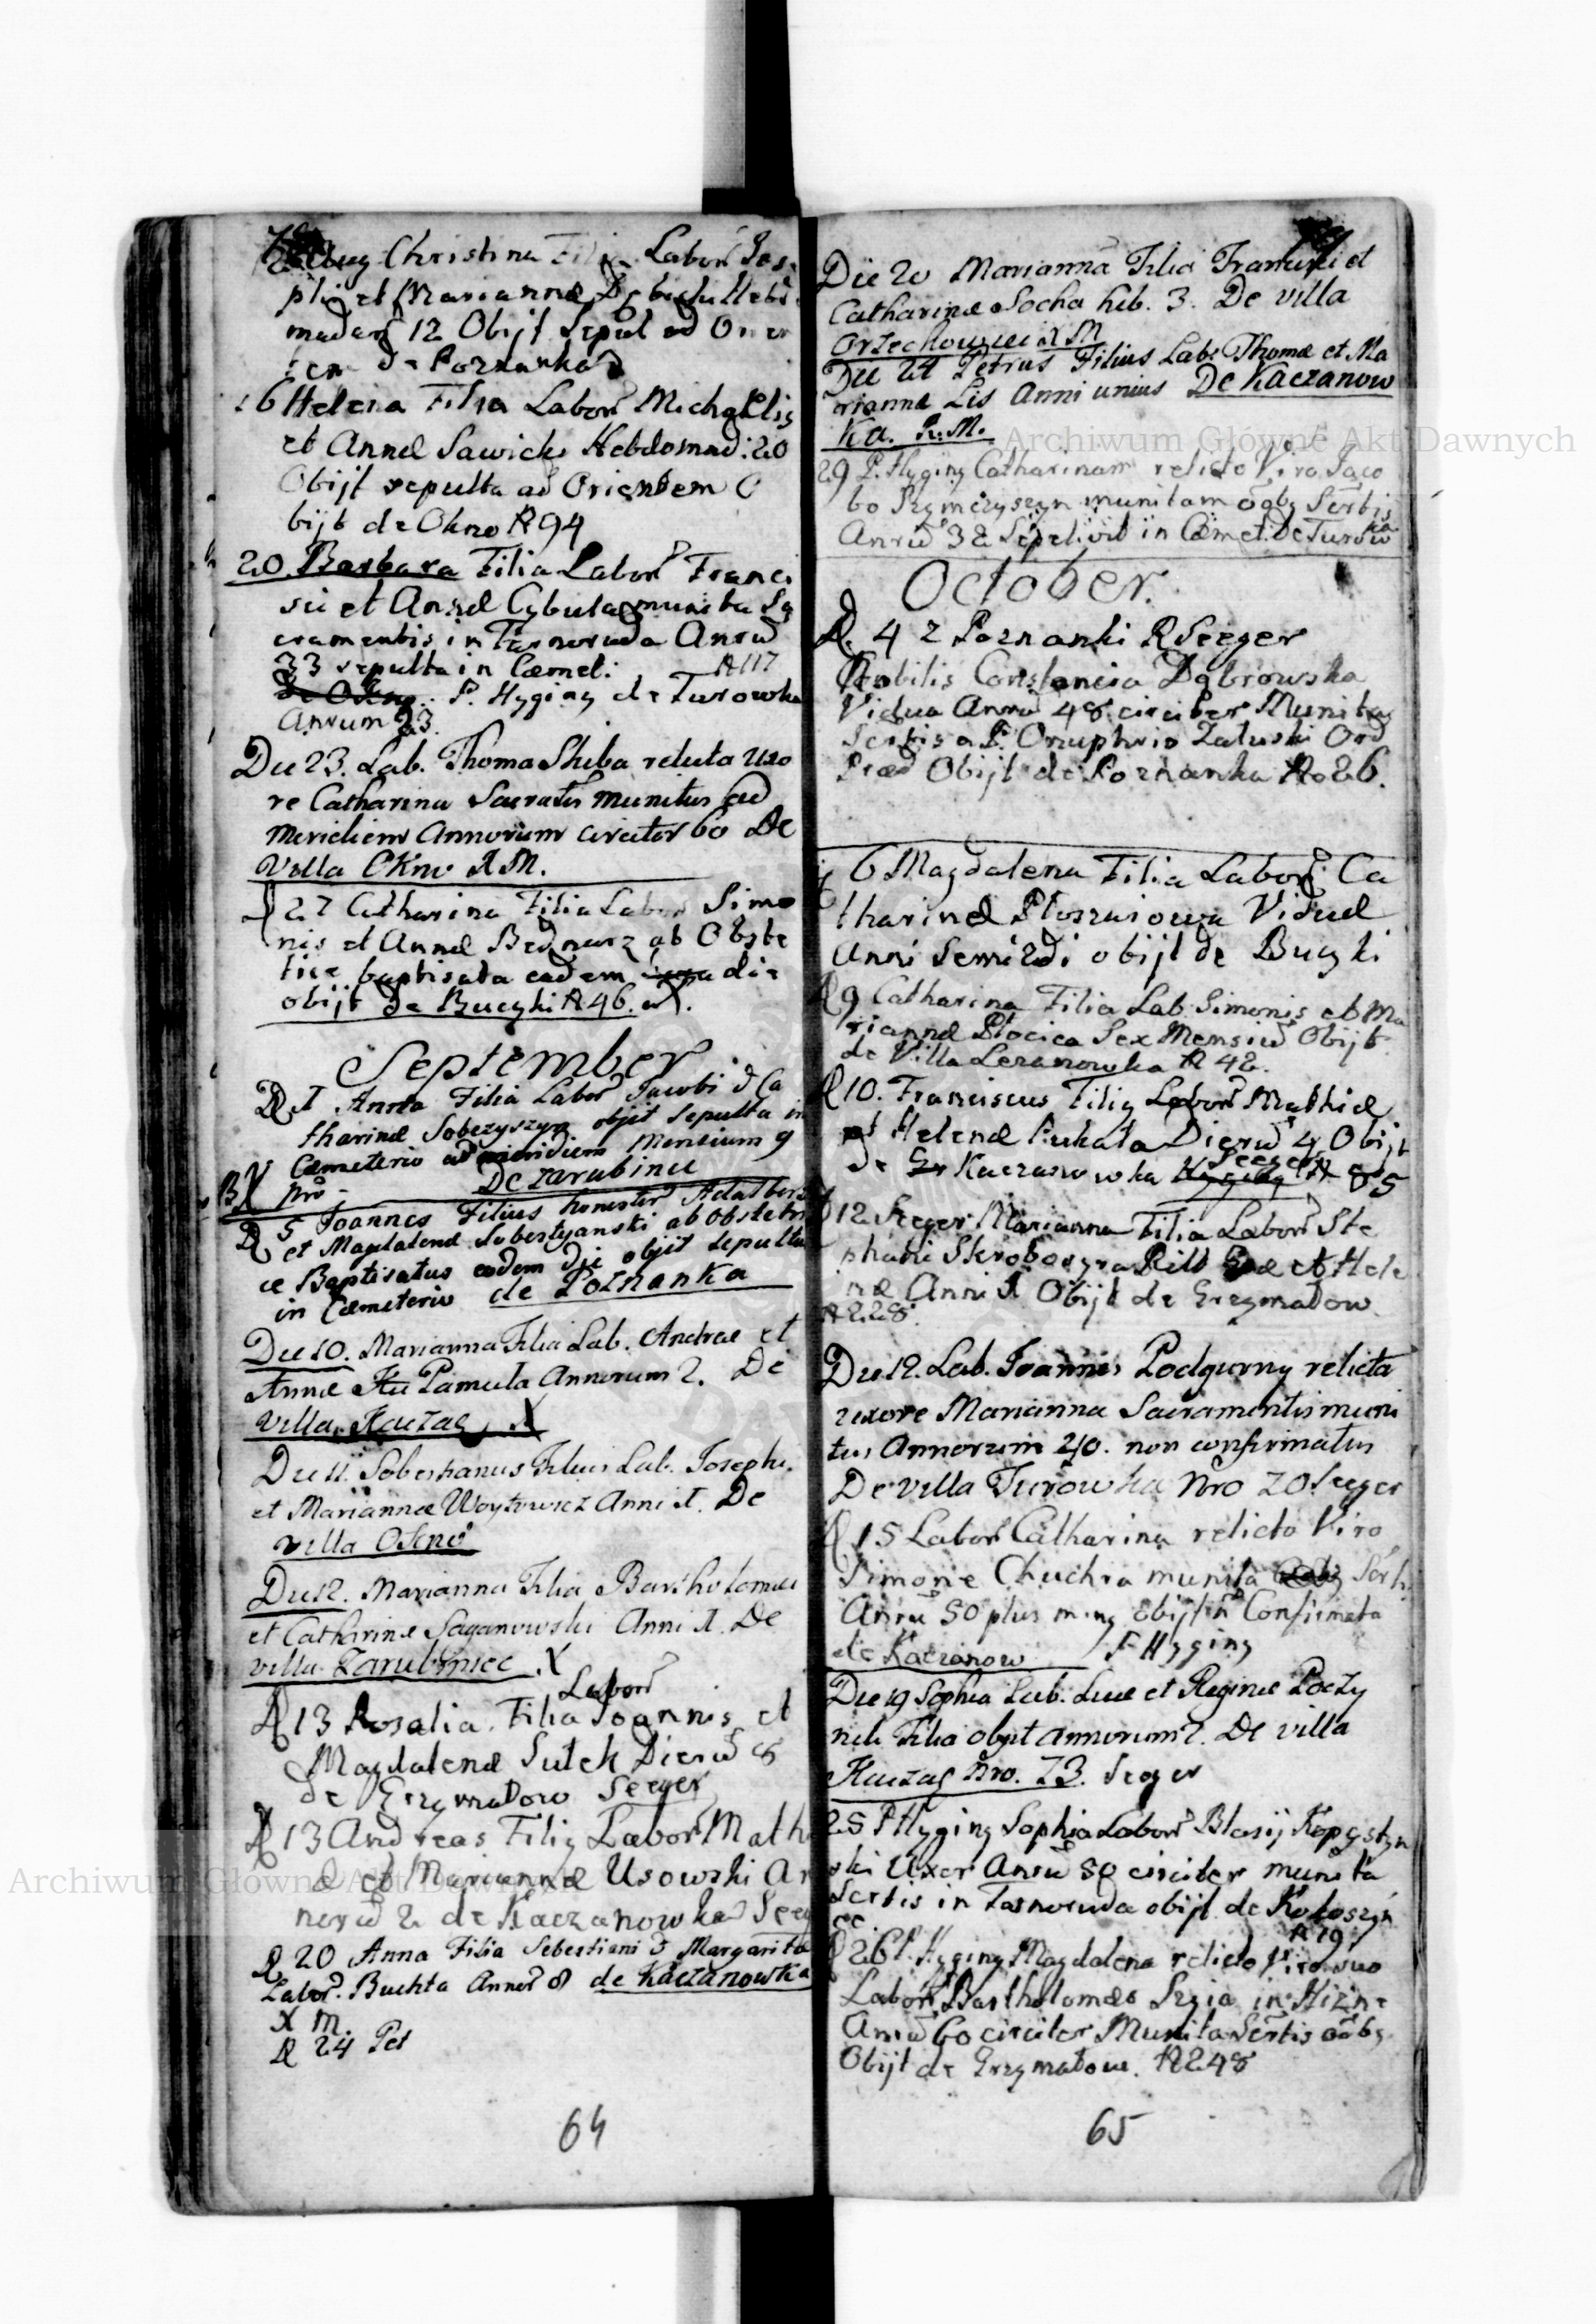 Aug Christina Filia Labor Jose
phi et Mariannæ
madarū 12 Obijt Sepul ad Orien
tem de Poznanka
16 Helena Filia Labor Michaelis
et Annæ Sawicki Hebdomad: 20
Obijt sepulta ad Orientem O
bijt de Okno N 94
20. Barbara Filia Labor Franci
sci et Annæ Cybula munita Sa
cramentis in Tarnoruda Anrū
33 sepulta in Cæmet: N 117
P. Hyginq de Turowka
Anrum 33.
Die 23. Lab. Thoma Skiba relicta Uxo
re Catharina Sacratis munitus ad
Meridiem Annorum circiter 60 De
Villa Okno X M.
27 Catharina Filia Labor Simo
nis et Annæ Bednarz ab Obste
trice baptisata eadem die
obijt de Bucyki N 46.
September
D 1 Anna Filia Labor Jacobi & Ca
tharinæ Sobczyszyn objit Sepulta in
Cæmeterio ad meridiem Mensium 9
BX nro - De Zarubince
D 5 Joannes Filius honestor Adalberti
et Magdalenæ Sobestyanski ab Obstetri
ce Baptisatus eodem die objit sepultus
in Cæmeterio de Poznanka
Die 10. Marianna Filia Lab. Andreæ et
Annæ Pamuła Annorum 2. De
villa Kaczan X
Die 11. Sobestianus Filius Lab. Josephi
et Mariannæ Woytowicz Anni 1. De
villa Okno
Die 12. Marianna Filia Bartholomæi
et Catharinæ Saganowski Anni 1. De
villa Zarubinice X
Labor
D 13 Rosalia Filia Joannis et
Magdalenæ Sutek Dierū 8
de Grzymałow Seeger
D 13 Andreas Filiq Labor Math
et Mariannæ Usowski An
norū 2 de Kaczanowka Seeg
D 20 Anna Filia Sebestiani & Margarita
Labor. Buchta Annor 8 de Kaczanowka
X M.
D 24 Pet
64
Die 20 Marianna Filia Francisci et
Catharinæ Socha heb. 3. De villa
Orzechowiec X M
Die 24 Petrus Filius Lab: Thomæ et Ma
riannæ Lis Anni unius De Kaczanow
ka. X. M.
29 P. Hyginq Catharinam relicto Viro Jaco
bo Szymczyszyn munitam ōbq Sertis
Anrū 32 Sepelivit in Cæmet. De Turowka
October.
D. 4 2 Poznanki R Seeger
Nobilis Constancia Dąbrowska
Vidua Annrū 48 circiter Munita
Sertis a P. Onuphrio Załuski Ord
Præd Obijt de Poznanka No 26.
6 Magdalena Filia Labor: Ca
tharinæ Płoszaiowa Viduæ
Anni Semi obijt de Bucyki
D 9 Catharina Filia Lab. Simonis et Ma
riannæ Płocica Sex Mensiū Obijt
de Villa Lezanowka N 42.
D 10. Franciscus Filiq Labor Mathiæ
et Helenæ Pukała Dierū 4 Obijt
Seeger
de Kaczanowka N 85
12 Seeger Marianna Filia Labor Ste
phani et Hele
næ Anni 1 Obijt de Grzymałow
N 228.
Die 12. Lab. Joannes Podgurny relicta
uxore Marianna Sacramentis muni
tus Annorum 40. non confirmatus
De villa Turowka Nro 20 Seeger
D 15 Labor Catharina relicto Viro
Simone Chuchra munita Sertis
Anrū 50 plus minq obijt ñ Confirmata
de Kaczanow P Hyginq
Die 19 Sophia Lab. Lucæ et Reginæ Poczy
nek Filia objit annorum 2. De villa
Kaczan Nro. 73. Seeger
25 P Hyginq Sophia Labor Blasij Kopystyn
ski Uxor Anrū 50 circiter munita
Sertis in Tarnoruda obijt de Kokoszyn
ce. N 19
D 26 P. Hyginq Magdalena relicto Viro suo
Labor Bartholomæo Szyia in Hizne
Anrū 60 circiter Munita Sertis ōībq
Obijt de Grzymałow. N 248
65
Archiwum Główne Akt Dawnych
Archiwum Główne Akt Dawnych